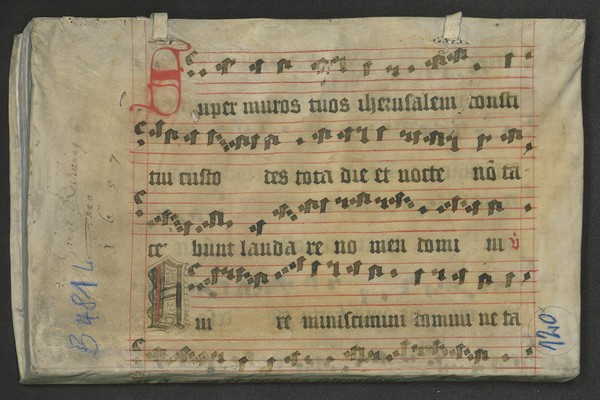 Super muros tuos iherusalem consti
tui custo des tota die et nocte nō ta
ce bunt lauda re no men domi ni ℣
Qui re miniscimini domini ne ta
B 481 L
120
1657